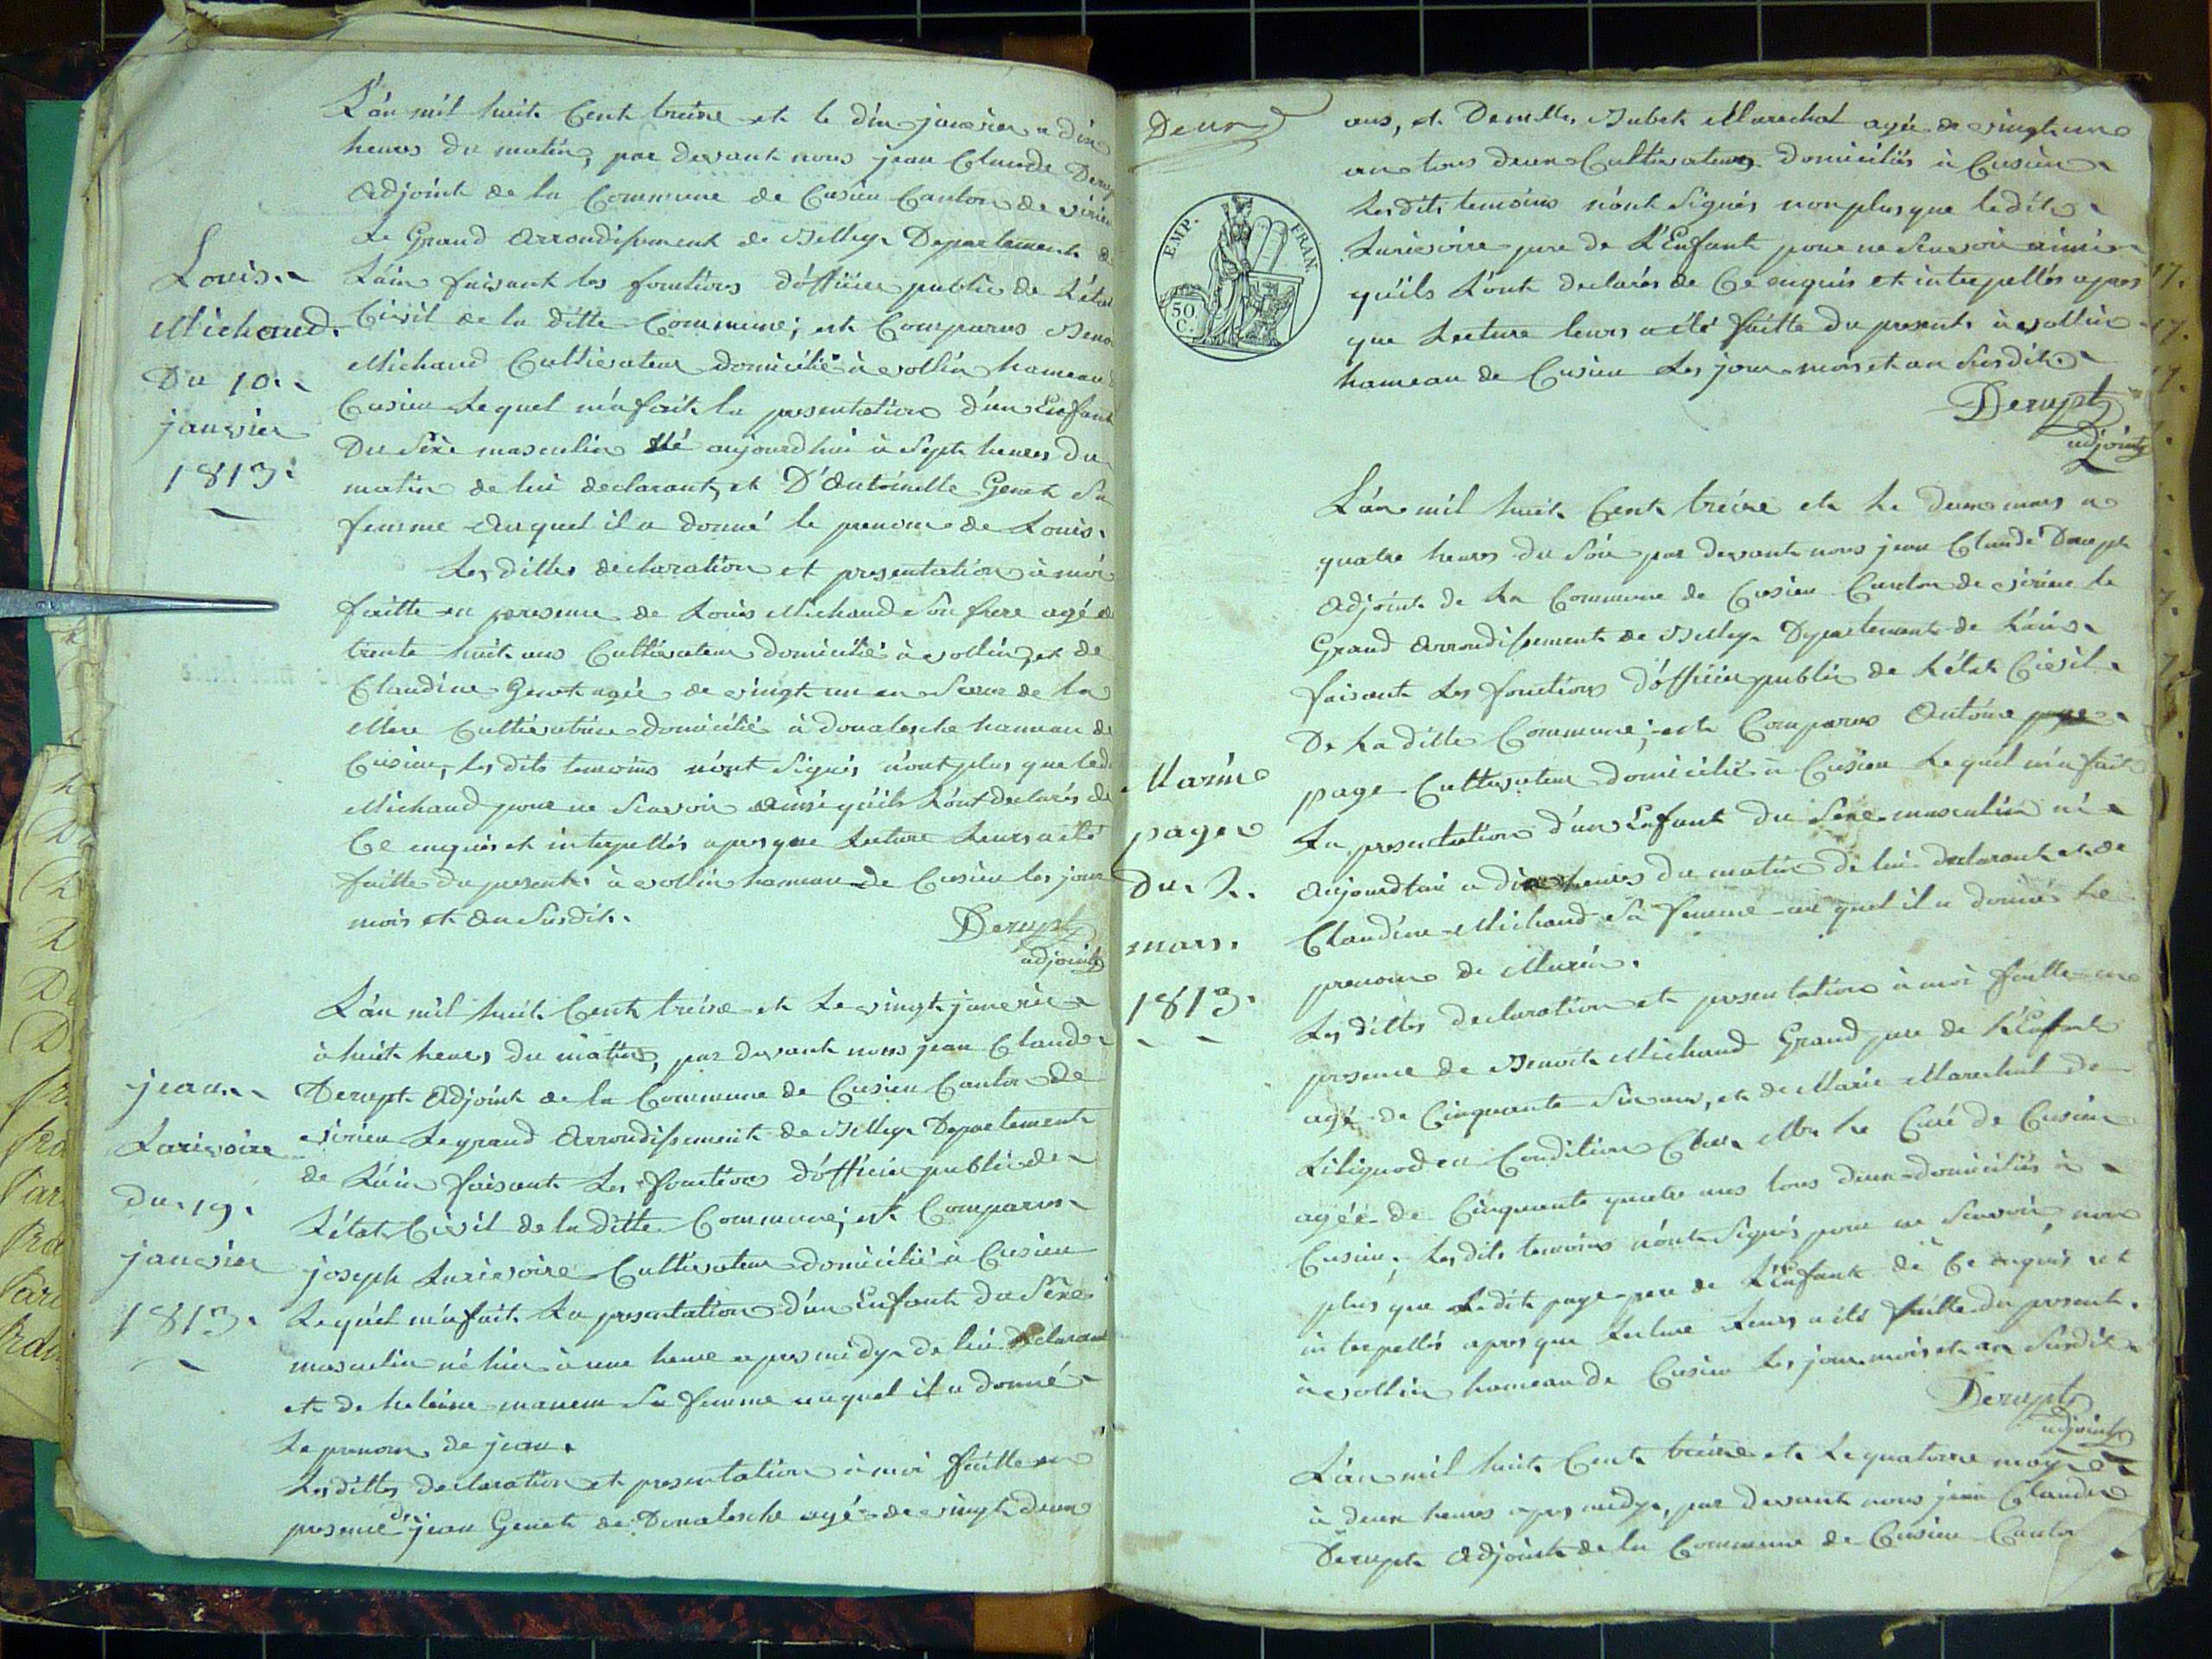 L'an mil huit Cent treize et le dix janvier a dix
heures du matin, par devant nous jean Claude Derupt
Adjoint de la Commune de Cusieu Canton de virieu
Le Grand Arrondissement de Belley Departement de
L'ain faisant les fonctions d'officier public de L'état
Civil de la ditte Commune; est Comparus Benoit
Michaud Cultivateur domicilié à vollin hameau
Cusieu Lequel m'a fait la presentation d'un Enfant
Du Sexe masculin Né aujourd'hui à Sept heures du
matin de lui declarant, et D'Antoinette Genet Sa
femme Auquel il a donné le prenom de Louis.
Les dittes declaration et presentation à moi
faitte en presence de Louis Michaud Son frere agé de
trente huit ans Cultivateur domicilié à vollin, et de
Claudine Genet agée de vingt un an Sœur de la
Mere Cultivatrice domicilié à donalesche hameau de
Cusieu, les dits temoins n'ont Signés n'ont plus que led
Michaud pour ne Scavoir ainsi qu'ils L'ont declarés de
Ce enquis et interpellés apres que Lecture Leurs a été
faitte du present à vollin hameau de Cusieu les jour
mois et an Susdit.
Derupt
adjoint
Louis
Michaud.
Du 10.
janvier
1813.
L'an mil huit Cent treize et Le vingt janvier
à huit heures du matin, par devant nous jean Claude
Derupt Adjoint de la Commune de Cusieu Canton de
virieu Le grand Arrondissement de Belley Departement
de L'ain faisant Les fonctions d'officier public de
L'état Civil de la ditte Commune; est Comparus
joseph Larivoire Cultivateur domicilié a Cusieu
Lequel m'a fait La presentation d'un Enfant du Sexe
masculin né hier à une heure apres midy de lui declarant
et de helaine Sa femme auquel il a donné
Le prenom de jean.
Les dittes declaration et presentation à moi faitte en
presence de jean Genet de Donalesche agé de vingt deux
jean
Larivoire
du 19.
janvier
1813.
Deux
EMP. FRAN.
50 C.
ans, et Demlle Babet Marechal agée de vingt un
an tous deux Cultivateurs domiciliés à Cusieu
Les dits temoins n'ont Signés non plus que ledit
Larivoire pere de L'Enfant pour ne Scavoir ainsi
qu'ils L'ont declarés de Ce enquis et interpellés apres
que Lecture leurs a été faitte du present à vollin
hameau de Cusieu Les jour mois et an Susdit.
Derupt
adjoint
L'an mil huit Cent treize et Le deux mars a
quatre heures du Soir par devant nous jean Claude Derupt
Adjoint de La Commune de Cusieu Canton de virieu le
Grand Arrondissement de Belley Departement de L'ain
faisant Les fonctions d'officier public de L'état Civil
De La ditte Commune; est Comparus Antoine page
page Cultivateur domicilié à Cusieu Lequel m'a fait
La presentation d'un Enfant du Sexe masculin né
Aujourdhui a dix heures du matin de lui declarant et de
Claudine Michaud Sa femme au quel il a donné Le
prenom de Marin.
Les dittes declaration et presentation à moi faitte en
presence de Benoit Michaud Grand pere de L'Enfant
agé de Cinquante Six ans, et de Marie Marechal de
Lilignod en Condition Chez Mr Le Curé de Cusieu
agée de Cinquante quatre ans tous deux domiciliés à
Cusieu; Les dits temoins n'ont Signés pour ne Scavoir, non
plus que Ledit page pere de L'Enfant de Ce enquis et
interpellés apres que Lecture Leurs a été faitte du present
à vollin hameau de Cusieu Les jour mois et an Susdit
Derupt
adjoint
Marin
page
Du 2.
mars.
1813.
L'an mil huit Cent treize et Le quatorze may
à deux heures apres midy, par devant nous jean Claude
Derupt Adjoint de la Commune de Cusieu Canton